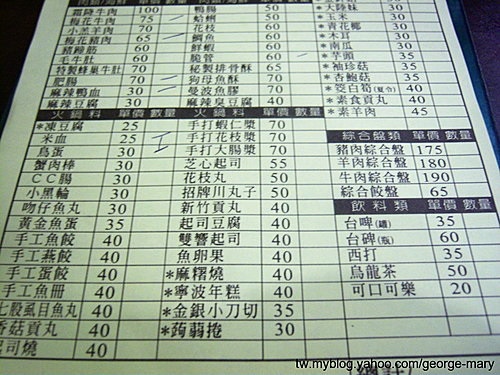 霜降牛肉 100 鴨腸
梅花牛肉 75 蛤蜊 50 大陸妹 30
小羔羊肉 70 花枝 60 *玉米 30
梅花豬肉 65 鯛魚 60 *青花椰 30
豬蹄筋 70 鮮蝦 60 *木耳 30
毛牛肚 70 脆管 60 *南瓜 30
特製蜂巢牛肚 70 秘製排骨酥 65 *芋頭 35
肥腸 70 狗母魚酥 70 *袖珍菇 35
麻辣鴨血 30 曼波魚膠 70 *杏鮑菇 35
麻辣豆腐 30 麻辣臭豆腐 40 *筊白筍(夏令) 40
火鍋料 單價 數量 火鍋料 單價 數量 *素食貢丸 40
*凍豆腐 25 手打蝦仁漿 70 *素羊肉 45
米血 25 手打花枝漿 70
鳥蛋 30 手打大腸漿 70 綜合盤類 單價 數量
蟹肉棒 30 芝心起司 55 豬肉綜合盤 175
CC腸 30 花枝丸 50 羊肉綜合盤 180
小黑輪 30 招牌川丸子 50 牛肉綜合盤 190
吻仔魚丸 30 新竹貢丸 40 綜合餃盤 65
黃金魚蛋 35 起司豆腐 40 飲料類 單價 數量
手工魚餃 40 雙響起司 40 台啤(罐) 35
手工燕餃 40 魚卵果 40 台碑(瓶) 60
手工蛋餃 40 *麻糬燒 40 西打 35
手工魚冊 40 *寧波年糕 40 烏龍茶 50
七股虱目魚丸 40 *金銀小刀切 35 可口可樂 20
香菇貢丸 40 *蒟蒻捲 30
起司燒 40
tw.myblog.yahoo.com/george-mary